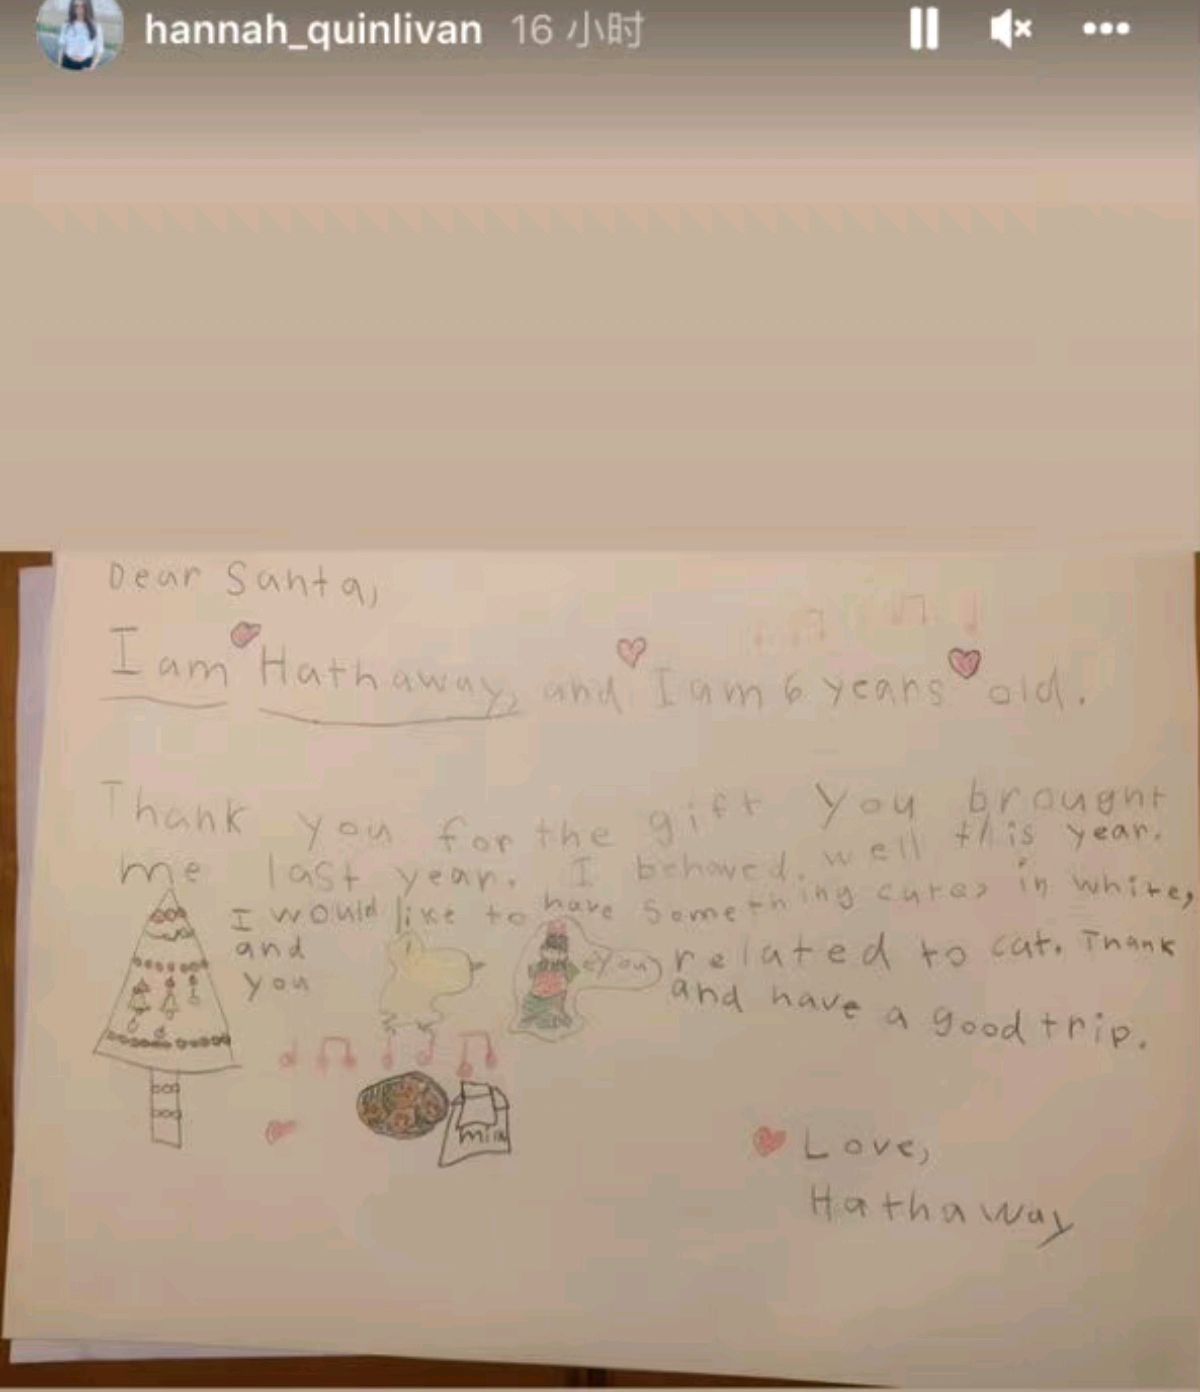 hannah_quinlivan 16 小时
Dear Santa,
I am Hathaway, and I am 6 years old.
Thank you for the gift you brought
me last year. I behaved. well this year.
I would like to have something cute, in white,
and related to cat. Thank
you and have a good trip.
(You)
milk
Love,
Hathaway